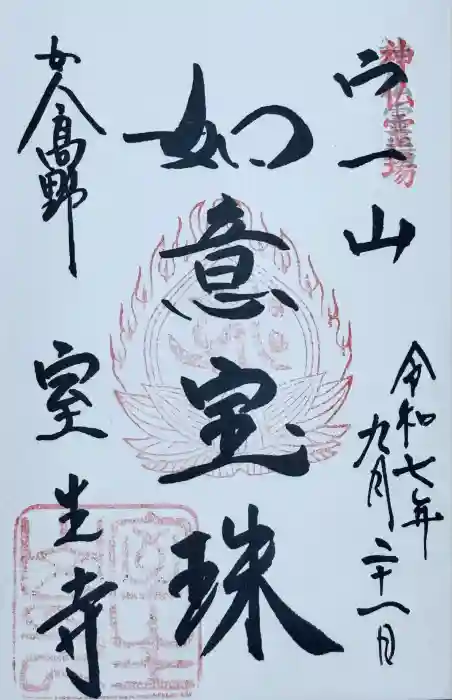 神仏霊場
宀一山
令和七年
九月二十八日
如意宝珠
女人高野
室生寺